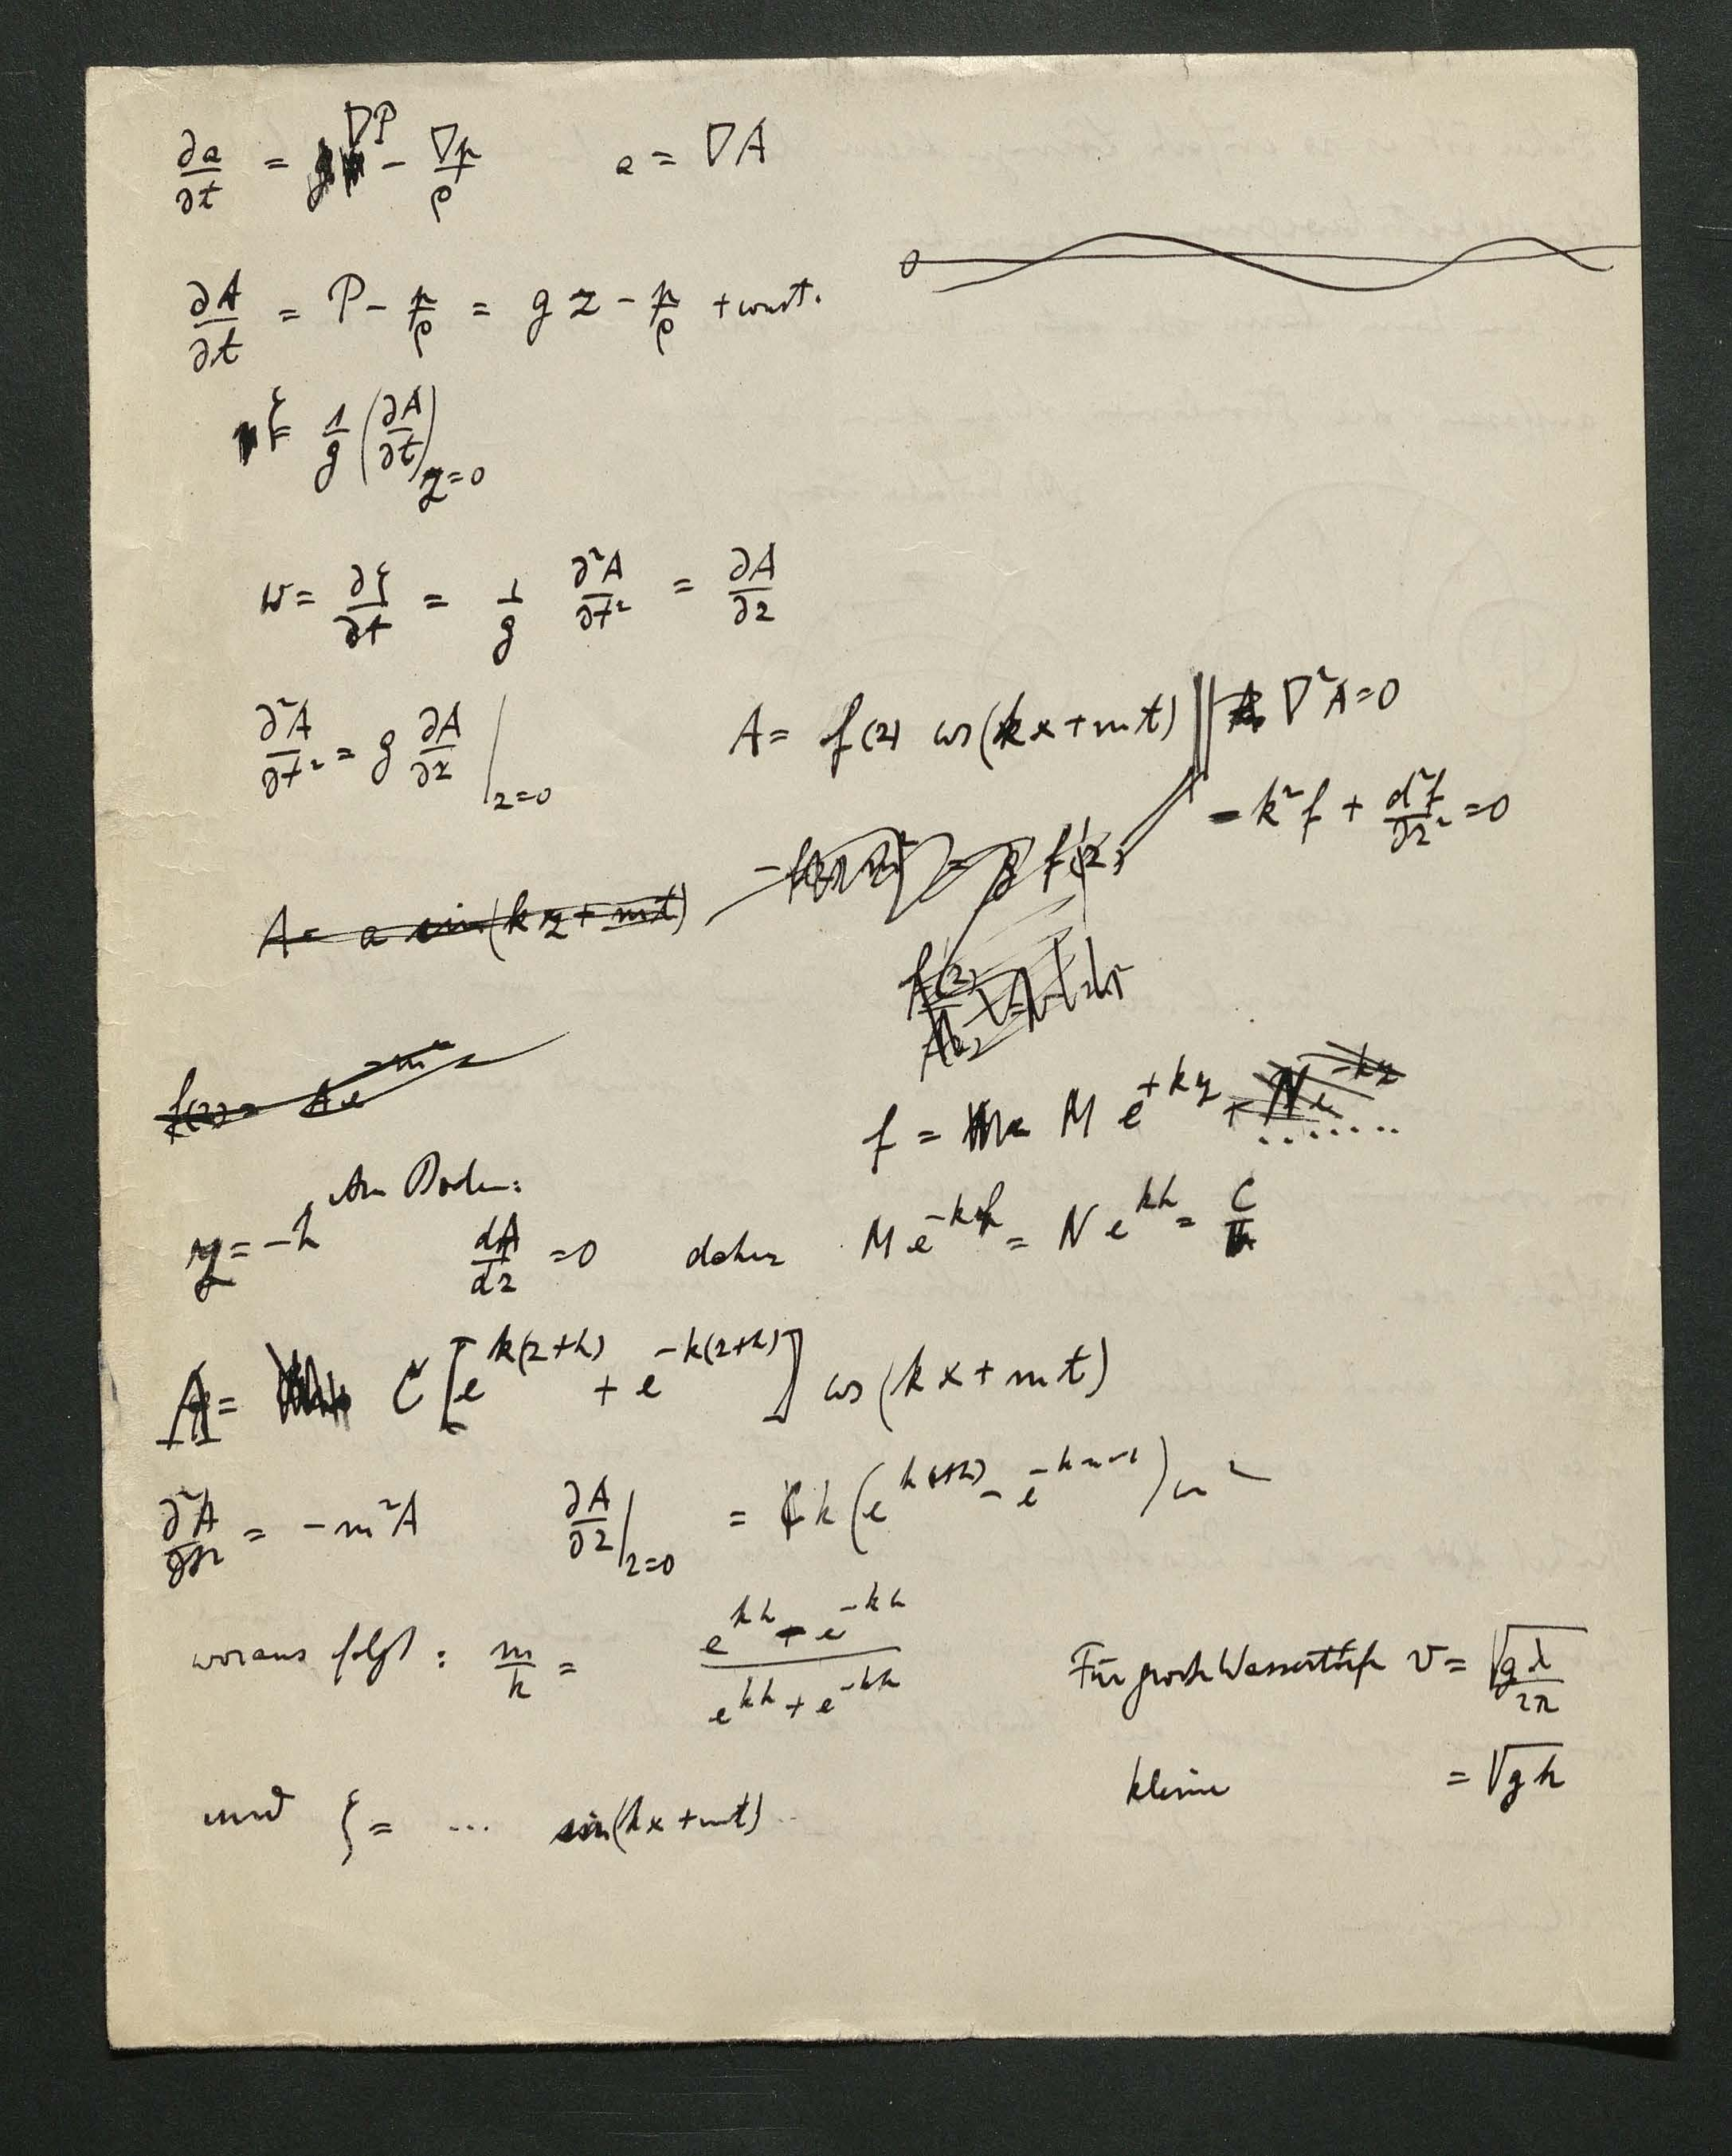 ∂a/∂t = ∇P − ∇p/ρ    a = ∇A
0
∂A/∂t = P − p/ρ = g z − p/ρ + const.
ζ = 1/g (∂A/∂t) z=0
w = ∂ζ/∂t = 1/g ∂²A/∂t² = ∂A/∂z
∂²A/∂t² = g ∂A/∂z | z=0    A = f(z) cos(kx + mt) || ∇²A = 0
− k² f + d²f/∂z² = 0
A = a sin(kz + mt)
f(z) = A e
f = M e^{+kz} + N e^{−kz} .......
Am Boden:
z = −h    dA/dz = 0    daher    M e^{−kh} = N e^{kh} = C
A = C [e^{k(z+h)} + e^{−k(z+h)}] cos(kx + mt)
∂²A/∂t² = − m² A    ∂A/∂z | z=0 = C k (e^{k(z+h)} − e
woraus folgt : m/k = e^{kh} − e^{−kh} / e^{kh} + e^{−kh}    Für große Wassertiefe v = √gλ/2π
kleine    = √gh
und ζ = ... sin(kx + mt)